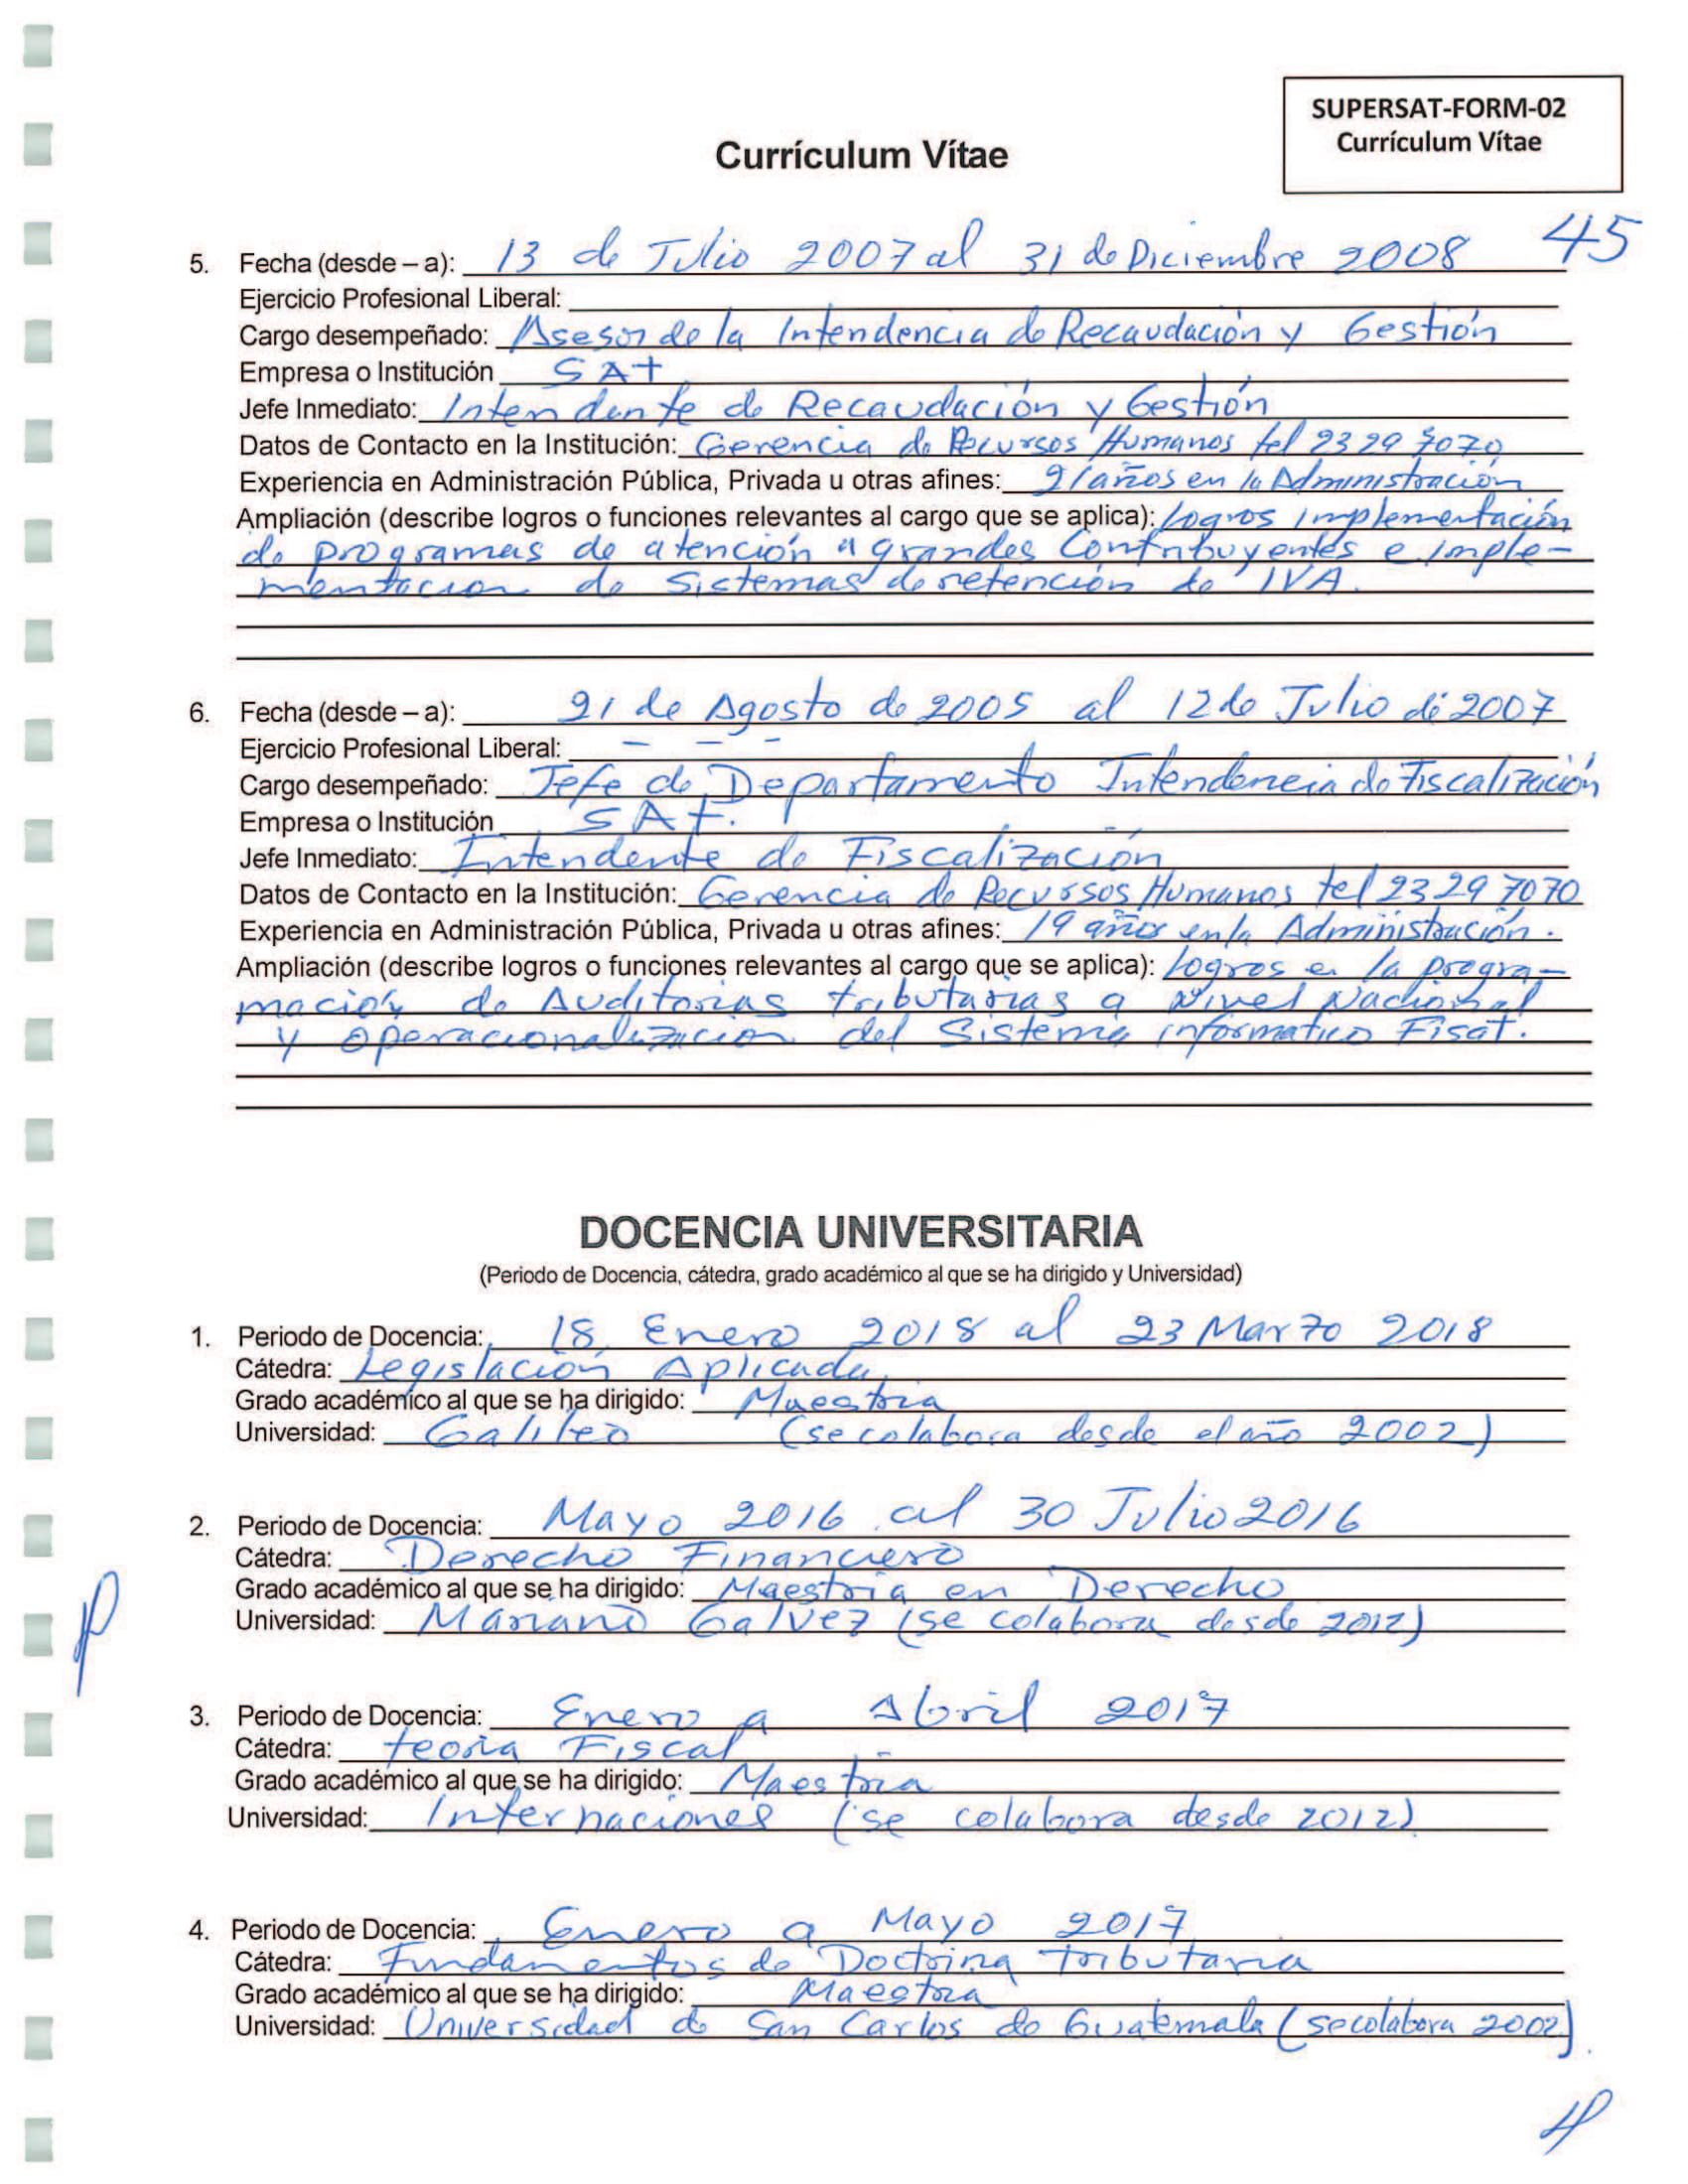 SUPERSAT-FORM-02
Currículum Vítae
Currículum Vítae
45
5. Fecha (desde – a): 13 de Julio 2007 al 31 de Diciembre 2008
Ejercicio Profesional Liberal:
Cargo desempeñado: Asesor de la Intendencia de Recaudación y Gestión
Empresa o Institución SAT
Jefe Inmediato: Intendente de Recaudación y Gestión
Datos de Contacto en la Institución: Gerencia de Recursos Humanos tel 2329 7070
Experiencia en Administración Pública, Privada u otras afines: 21 años en la Administración
Ampliación (describe logros o funciones relevantes al cargo que se aplica): Logros Implementación
de programas de atención a grandes Contribuyentes e imple-
mentacion de Sistemas de retención de IVA.
6. Fecha (desde – a): 21 de Agosto de 2005 al 12 de Julio de 2007
Ejercicio Profesional Liberal: – – –
Cargo desempeñado: Jefe de Departamento Intendencia de Fiscalización
Empresa o Institución SAT.
Jefe Inmediato: Intendente de Fiscalización
Datos de Contacto en la Institución: Gerencia de Recursos Humanos tel 2329 7070
Experiencia en Administración Pública, Privada u otras afines: 19 años en la Administración.
Ampliación (describe logros o funciones relevantes al cargo que se aplica): Logros en la progra-
mación de Auditorias tributarias a Nivel Nacional
y operacionalizacion del Sistema informatico Fisat.
DOCENCIA UNIVERSITARIA
(Periodo de Docencia, cátedra, grado académico al que se ha dirigido y Universidad)
1. Periodo de Docencia: 18 Enero 2018 al 23 Marzo 2018
Cátedra: Legislación Aplicada
Grado académico al que se ha dirigido: Maestria
Universidad: Galileo (se colabora desde el año 2002)
2. Periodo de Docencia: Mayo 2016 al 30 Julio 2016
Cátedra: Derecho Financiero
Grado académico al que se ha dirigido: Maestria en Derecho
Universidad: Mariano Galvez (se colabora desde 2012)
3. Periodo de Docencia: Enero a Abril 2017
Cátedra: teoria Fiscal
Grado académico al que se ha dirigido: Maestria
Universidad: Internaciones (se colabora desde 2012)
4. Periodo de Docencia: Enero a Mayo 2017
Cátedra: Fundamentos de Doctrina tributaria
Grado académico al que se ha dirigido: Maestria
Universidad: Universidad de San Carlos de Guatemala (se colabora 2002).